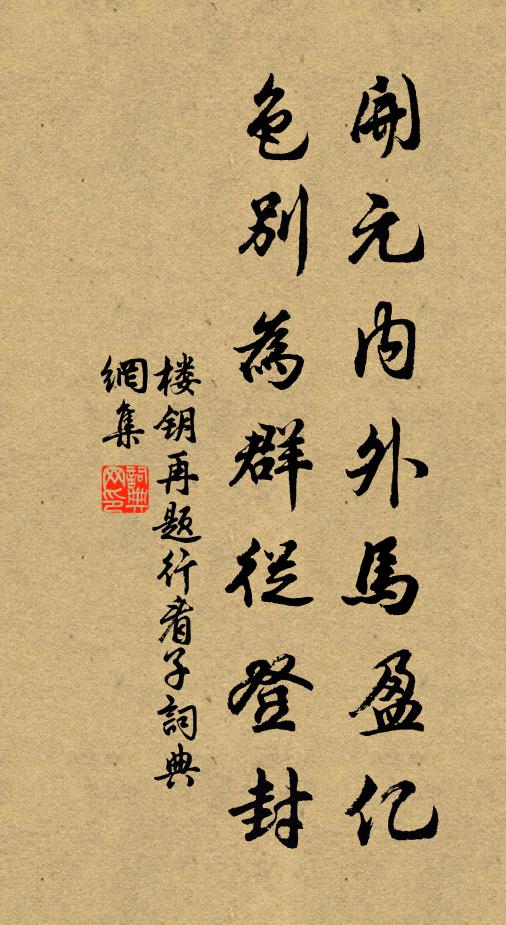 開元内外馬盈亿
色別為群從登封
楼钥再题行看子詞典
網集
詞典网印